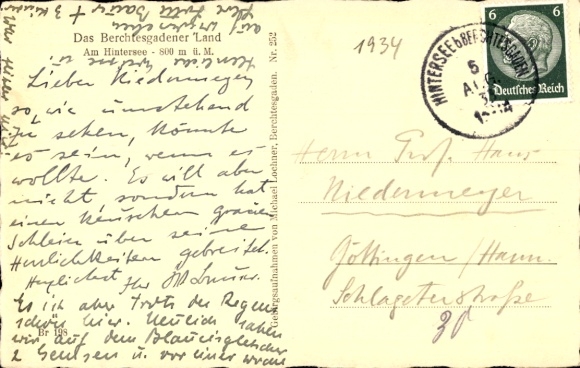 Das Berchtesgadener Land
Am Hintersee - 800 m ü. M.
Lieber Niedermeyer
so, wie umstehend
zu sehen, könnte
es sein, wenn es
wollte. Es will aber
nicht, sondern hat
einen keuschen grauen
Schleier über seine
Herrlichkeiten gebreitet.
Herzlichst Ihr
Es ist aber trotz des Regens
schön hier. Neulich sahen
wir auf dem Blaueisgletscher
2 Gemsen u. vor einer
Br 198
Gebirgsaufnahmen von Michael Lochner, Berchtesgaden. Nr. 252
1934
HINTERSEE b BERCHTESGADEN
5
6 6
Deutsches Reich
Herrn Prof. Hans
Niedermeyer
Göttingen / Hann.
Schlageterstraße
30